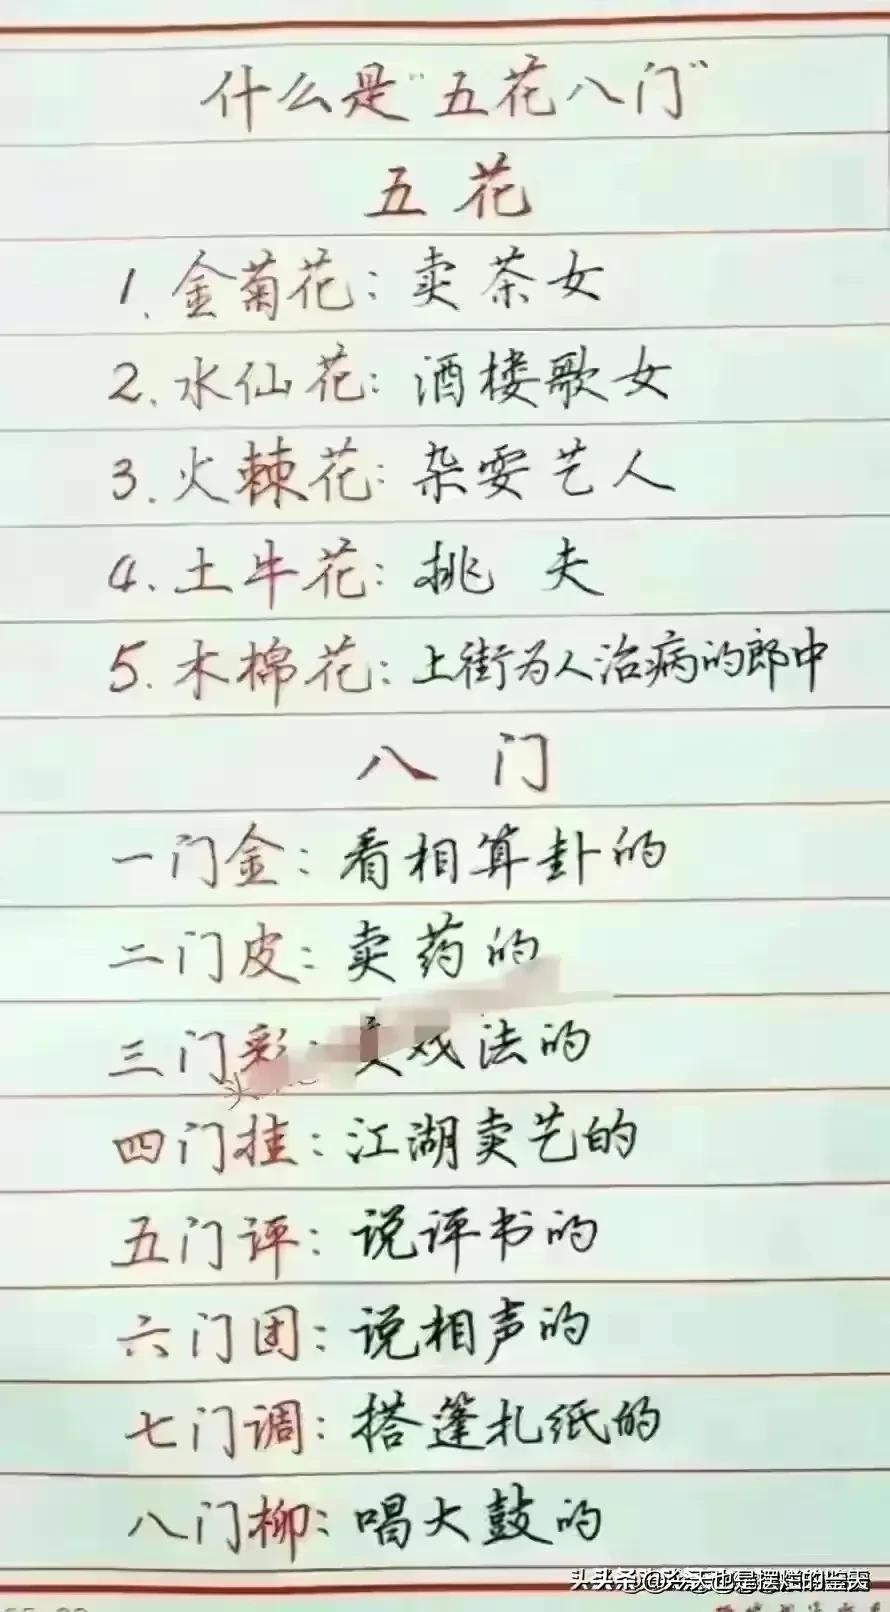 什么是“五花八门”
五花
1.金菊花：卖茶女
2.水仙花：酒楼歌女
3.火棘花：杂耍艺人
4.土牛花：挑夫
5.木棉花：上街为人治病的郎中
八门
一门金：看相算卦的
二门皮：卖药的
三门彩：变戏法的
四门挂：江湖卖艺的
五门评：说评书的
六门团：说相声的
七门调：搭篷扎纸的
八门柳：唱大鼓的